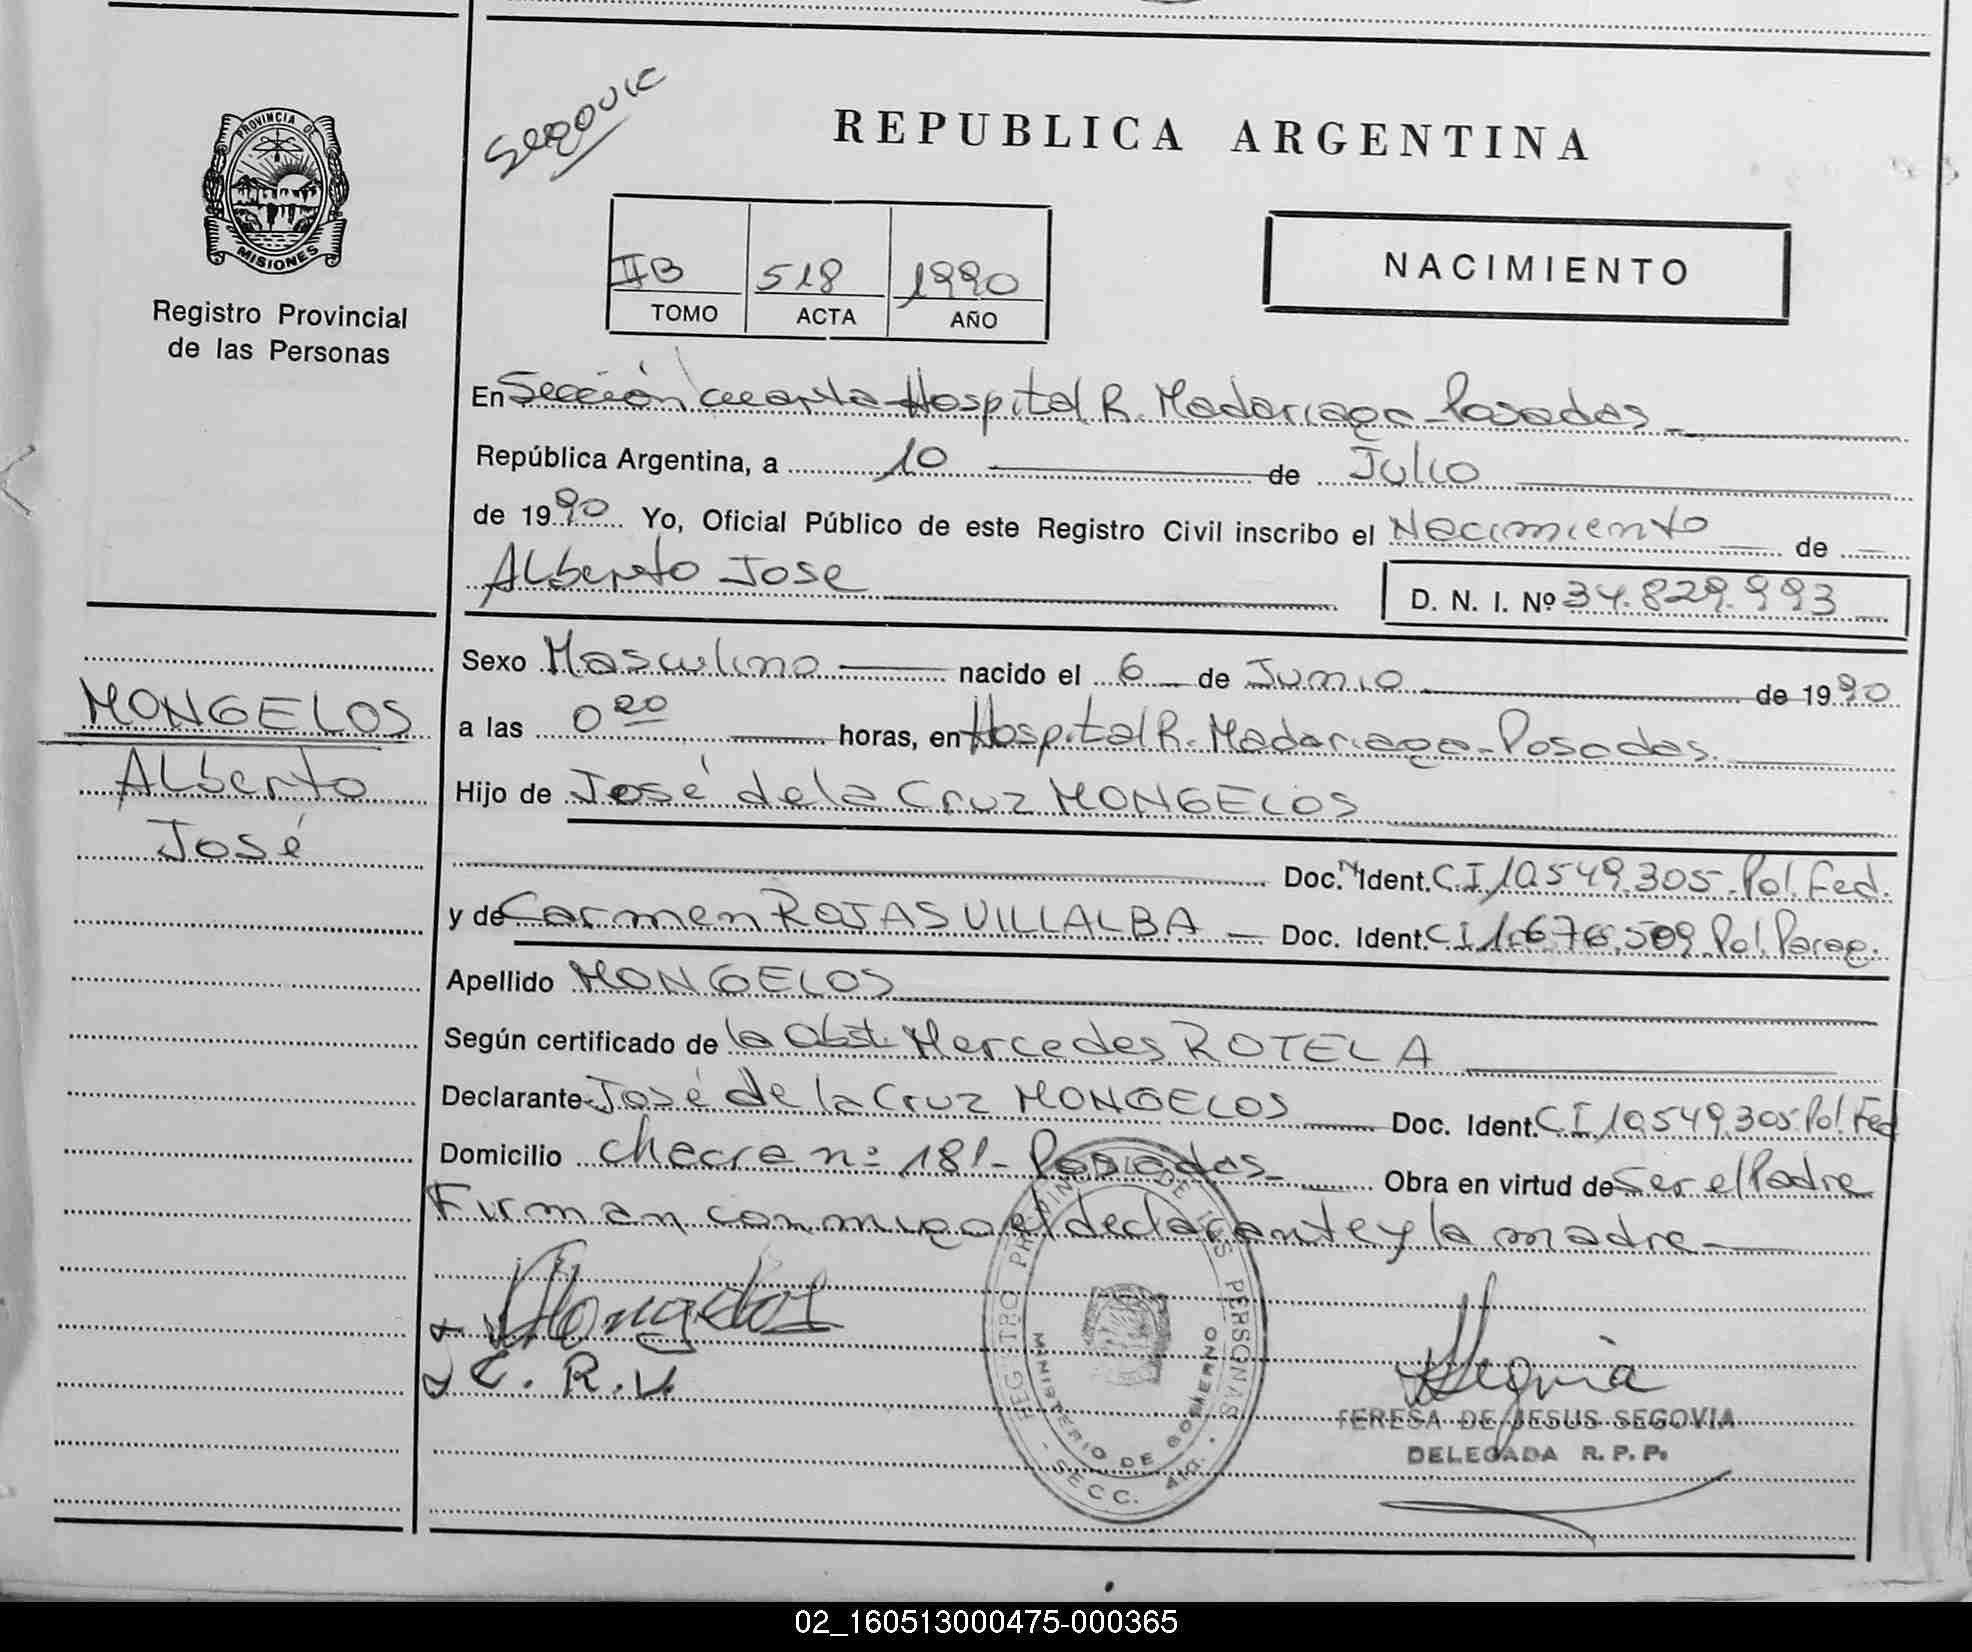 PROVINCIA DE
MISIONES
Registro Provincial
de las Personas
Segovia
REPUBLICA ARGENTINA
IIB 518 1990
TOMO ACTA AÑO
NACIMIENTO
En Sección cuarta Hospital R. Madariaga - Posadas -
República Argentina, a 10 de Julio
de 1990 Yo, Oficial Público de este Registro Civil inscribo el Nacimiento de
Alberto Jose D. N. I. Nº 34.829.993
MONGELOS
Alberto
José
Sexo Masculino nacido el 6 de Junio de 1990
a las 0 20 horas, en Hospital R. Madariaga - Posadas.
Hijo de José de la Cruz MONGELOS
Doc. N Ident. C I 10.549.305 - Pol. Fed.
y de Carmen ROJAS VILLALBA - Doc. Ident. C I 1.676.509 Pol. Parag.
Apellido MONGELOS
Según certificado de la Obst. Mercedes ROTELA
Declarante José de la Cruz MONGELOS Doc. Ident. C I 10.549.305 Pol. Fed
Domicilio Chacra nº 181 - Posadas - Obra en virtud de Ser el Padre
Firman conmigo el declarante y la madre -
Mongelos
C. R. V.
REGISTRO PROVINCIAL DE LAS PERSONAS
MINISTERIO DE GOBIERNO
SECC.
Segovia
TERESA DE JESUS SEGOVIA
DELEGADA R. P. P.
02_160513000475-000365